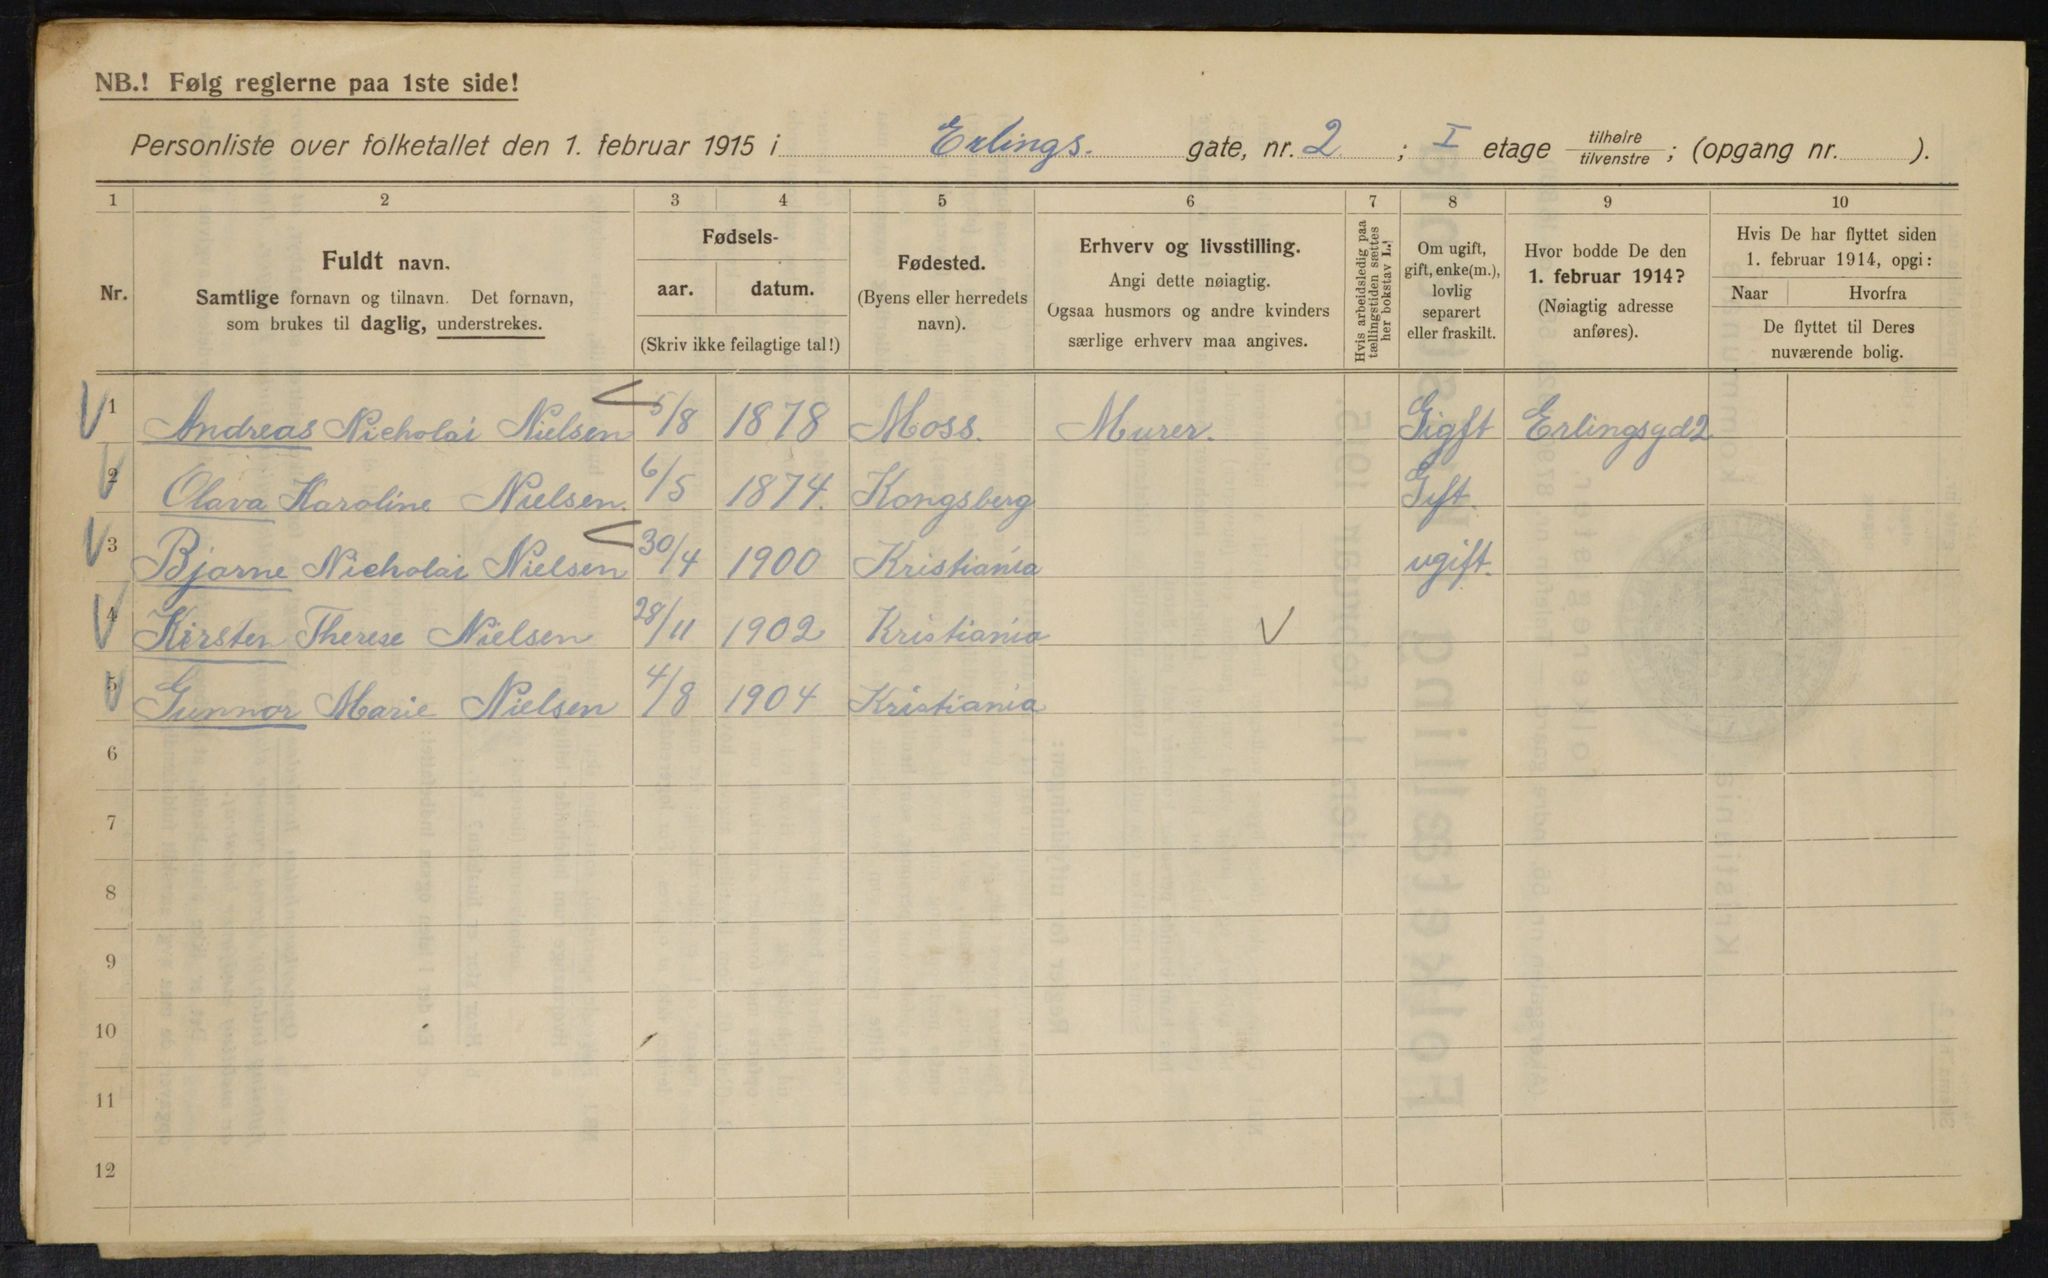 NB.! Følg reglerne paa 1ste side!
Personliste over folketallet den 1. februar 1915 i Erlings. gate, nr. 2 ; I etage tilhøire / tilvenstre ; (opgang nr. ).
1 2 3 4 5 6 7 8 9 10
Nr.
Fuldt navn.
Samtlige fornavn og tilnavn. Det fornavn,
som brukes til daglig, understrekes.
Fødsels-
aar. datum.
(Skriv ikke feilagtige tal!)
Fødested.
(Byens eller herredets
navn).
Erhverv og livsstilling.
Angi dette nøiagtig.
Ogsaa husmors og andre kvinders
særlige erhverv maa angives.
Hvis arbeidsledig paa
tællingstiden sættes
her bokstav L.
Om ugift,
gift, enke(m.),
lovlig
separert
eller fraskilt.
Hvor bodde De den
1. februar 1914?
(Nøiagtig adresse
anføres).
Hvis De har flyttet siden
1. februar 1914, opgi:
Naar Hvorfra
De flyttet til Deres
nuværende bolig.
1 Andreas Nicholai Nielsen 5/8 1878 Moss. Murer. Gigft Erlingsgd 2
2 Olava Karoline Nielsen. 6/5 1874. Kongsberg Gift.
3 Bjarne Nicholai Nielsen 30/4 1900 Kristiania ugift.
4 Kirsten Therese Nielsen 28/11 1902 Kristiania
5 Gunnor Marie Nielsen 4/8 1904 Kristiania
6
7
8
9
10
11
12